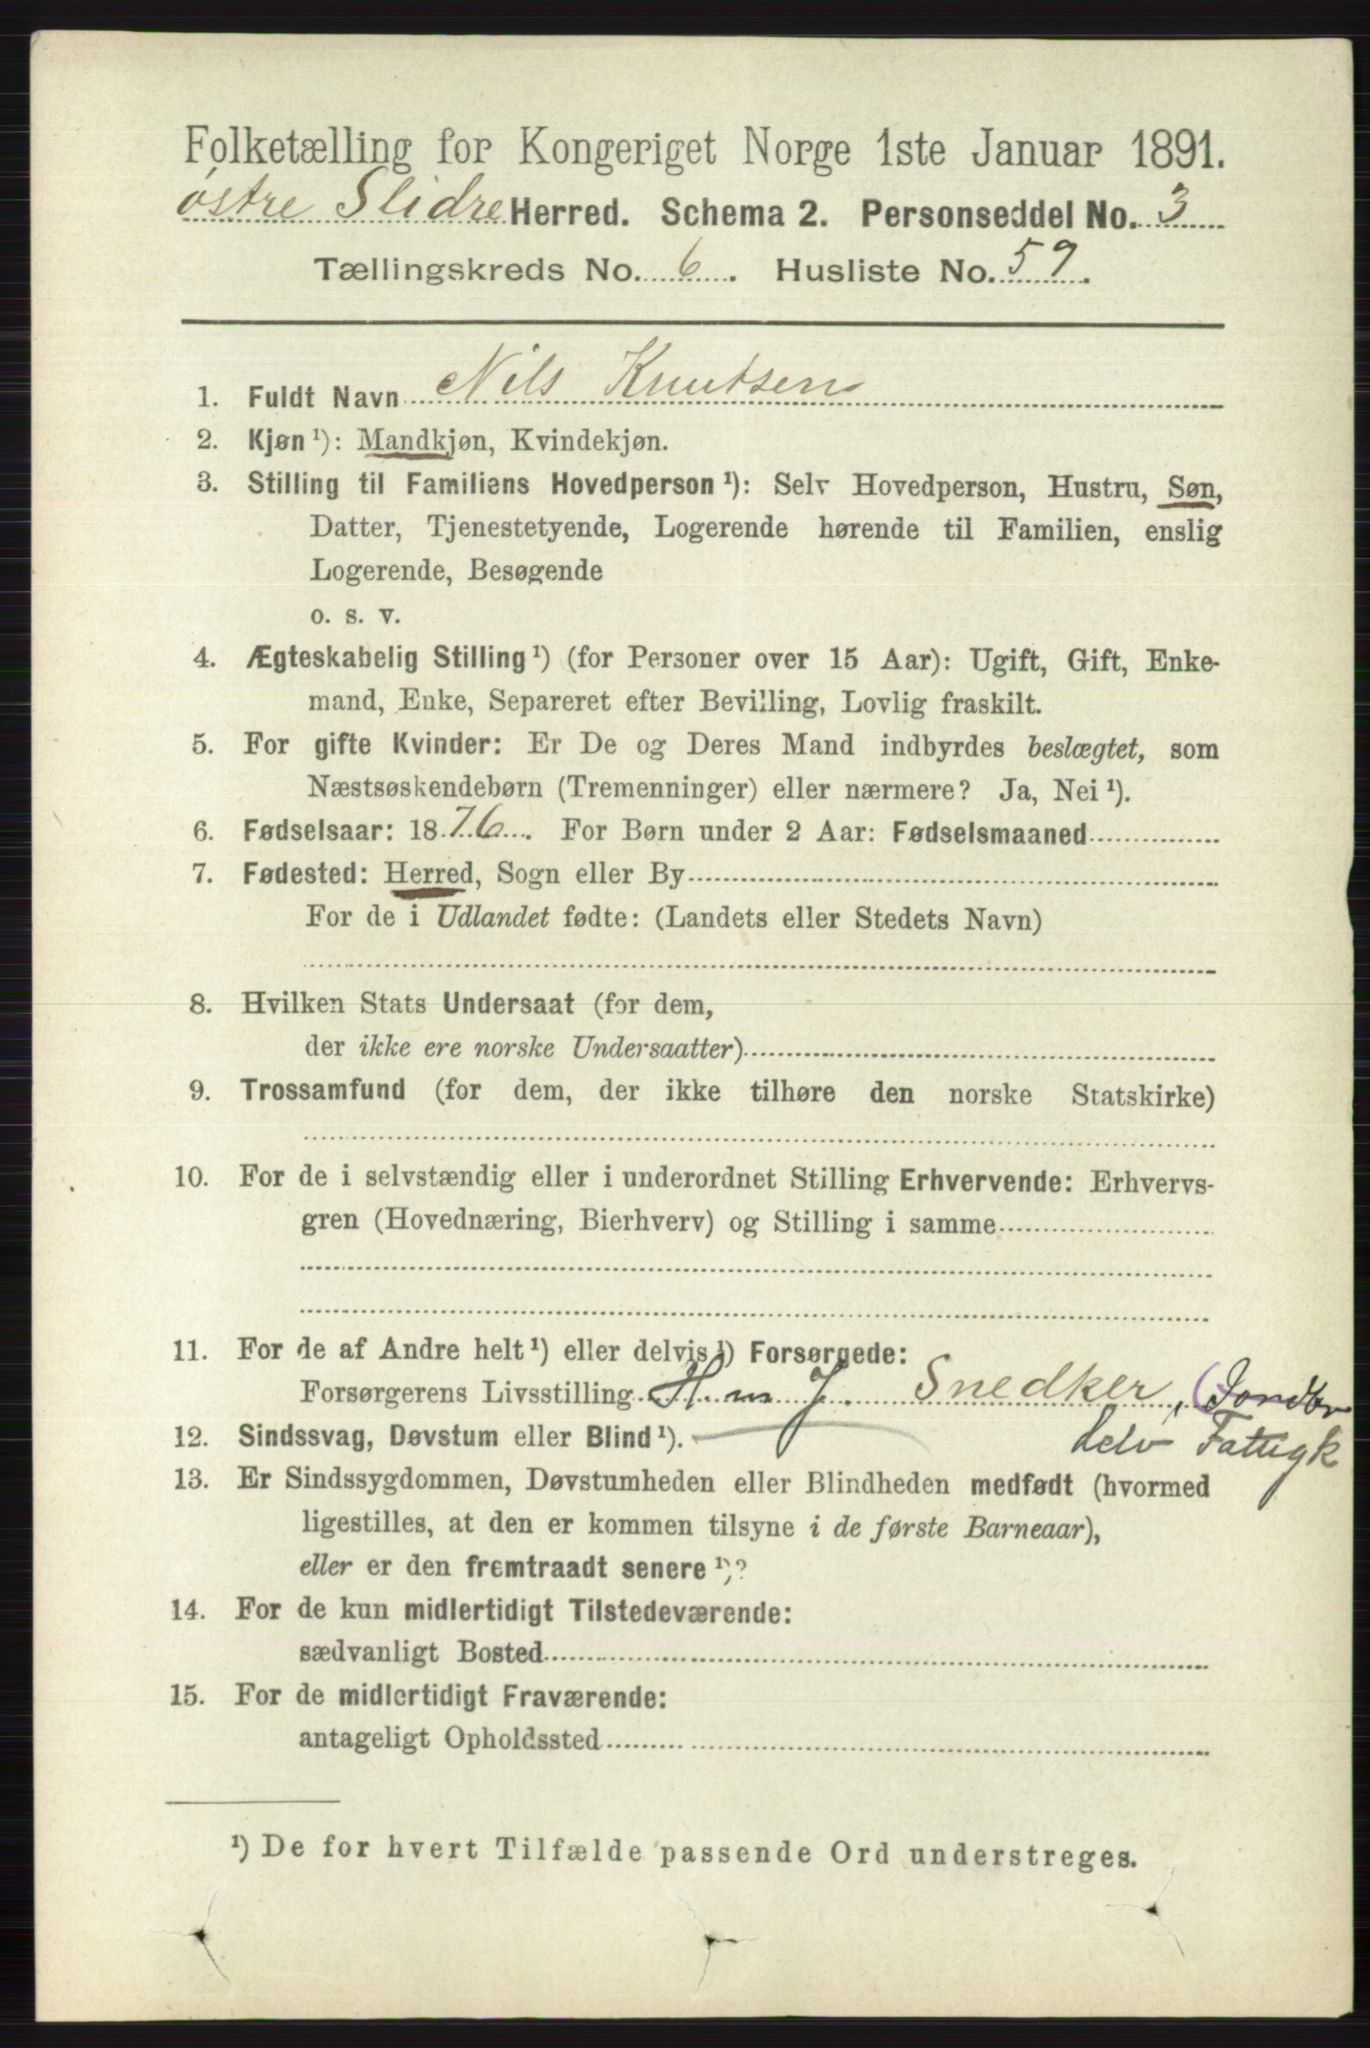 Folketælling for Kongeriget Norge 1ste Januar 1891.
østre Slidre Herred. Schema 2. Personseddel No. 3
Tællingskreds No. 6. Husliste No. 59.
1. Fuldt Navn Nils Knutsen
2. Kjøn ¹): Mandkjøn, Kvindekjøn.
3. Stilling til Familiens Hovedperson ¹): Selv Hovedperson, Hustru, Søn,
Datter, Tjenestetyende, Logerende hørende til Familien, enslig
Logerende, Besøgende
o. s. v.
4. Ægteskabelig Stilling ¹) (for Personer over 15 Aar): Ugift, Gift, Enke-
mand, Enke, Separeret efter Bevilling, Lovlig fraskilt.
5. For gifte Kvinder: Er De og Deres Mand indbyrdes beslægtet, som
Næstsøskendebørn (Tremenninger) eller nærmere? Ja, Nei ¹).
6. Fødselsaar: 1876. For Børn under 2 Aar: Fødselsmaaned
7. Fødested: Herred, Sogn eller By
For de i Udlandet fødte: (Landets eller Stedets Navn)
8. Hvilken Stats Undersaat (for dem,
der ikke ere norske Undersaatter)
9. Trossamfund (for dem, der ikke tilhøre den norske Statskirke)
10. For de i selvstændig eller i underordnet Stilling Erhvervende: Erhvervs-
gren (Hovednæring, Bierhverv) og Stilling i samme
11. For de af Andre helt ¹) eller delvis ¹) Forsørgede:
Forsørgerens Livsstilling H m J. Snedker, (Jordbr
12. Sindssvag, Døvstum eller Blind ¹). selv Fattigk
13. Er Sindssygdommen, Døvstumheden eller Blindheden medfødt (hvormed
ligestilles, at den er kommen tilsyne i de første Barneaar),
eller er den fremtraadt senere ¹)?
14. For de kun midlertidigt Tilstedeværende:
sædvanligt Bosted
15. For de midlertidigt Fraværende:
antageligt Opholdssted
¹) De for hvert Tilfælde passende Ord understreges.